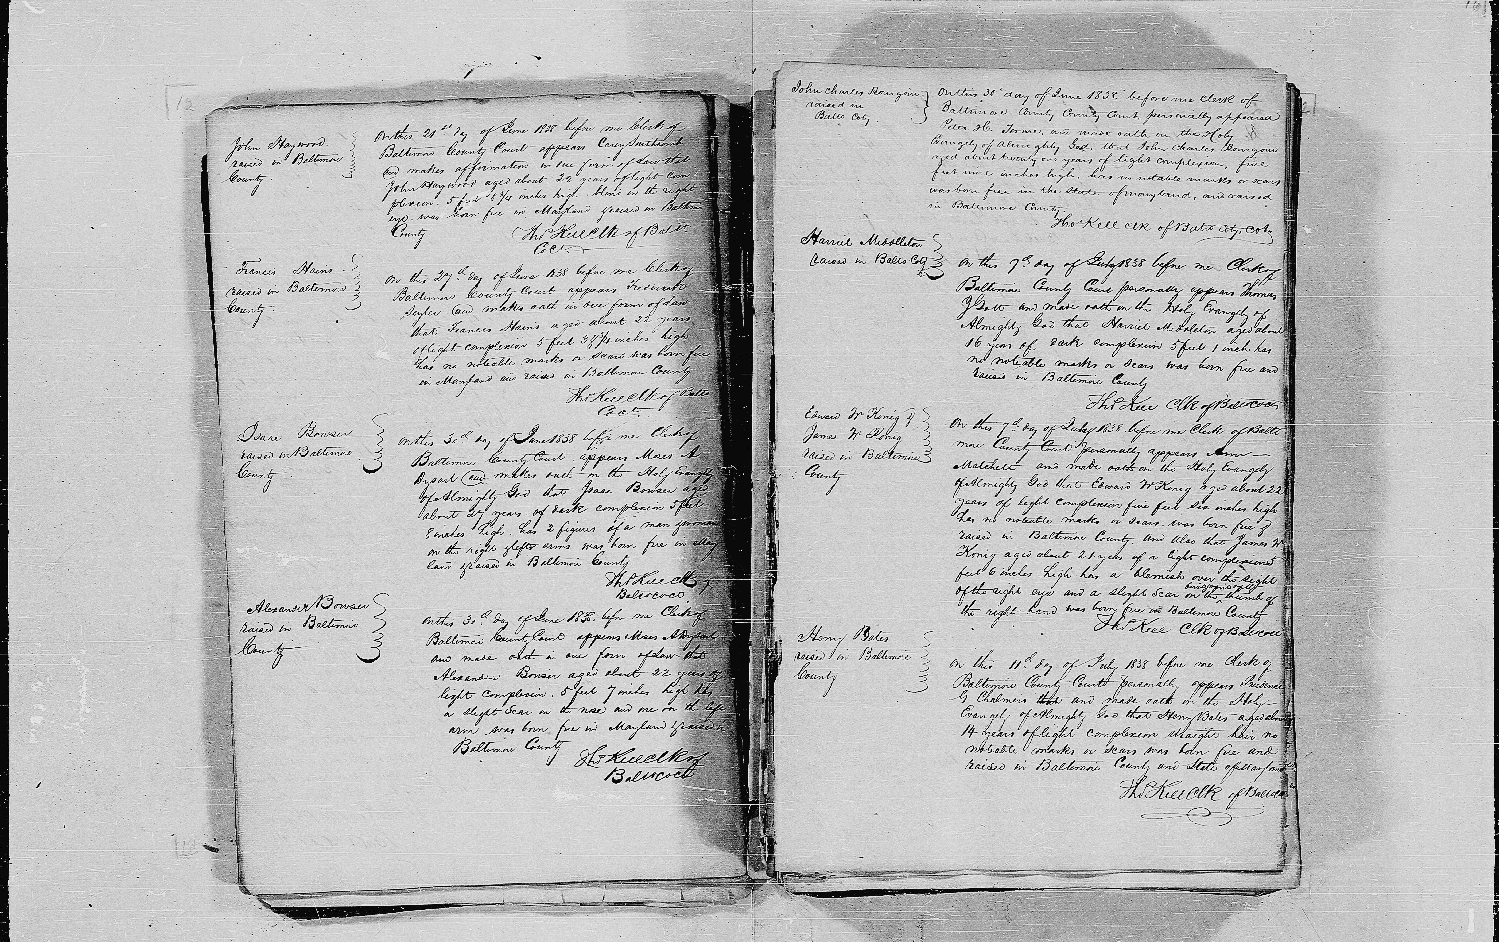 John Haywood
raised in Baltimore
County.
On this 21st day of June 1838 before me Clerk of
Baltimore County Court appears Carey
and makes affirmation in due form of Law that
John Haywood aged about 22 years of light com
plexion 5 feet inches high in the right
eye was born free in Maryland & raised in Baltim
County
Thos Kell Clk of Balto
Co Ct
Frances Hains
raised in Baltimore
County.
On this 27th day of June 1838 before me Clerk of
Baltimore County Court appears Frederick
Seyler and makes oath in due form of Law
that Frances Hains aged about 22 years
of light complexion 5 feet 3 inches high
has no noteable marks or scars was born free
in Maryland and raised in Baltimore County
Thos Kell Clk of Balto
Co Ct
Isaac Bowser
raised in Baltimore
County
On this 30th day of June 1838 before me Clerk of
Baltimore County Court appears Moses A
and makes oath on the Holy Evangely
of Almighty God that Isaac Bowser age
about years of dark complexion 5 feet
inches high has 2 figures of a man & woman
on the right & left arms was born free in Mary
land & raised in Baltimore County
Thos Kell Clk of
Balto Co Ct
Alexander Bowser
raised in Baltimore
County
On this 30th day of June 1838 before me Clerk of
Baltimore County Court appears Moses A
and made oath in due form of Law that
Alexander Bowser aged about 22 years of
light complexion 5 feet 7 inches high has
a slight scar on the nose and one on the left
arm was born free in Maryland & raised in
Baltimore County
Thos Kell Clk of
Balto Co Ct
John Charles
raised in
Balto Coty
On this 30th day of June 1838 before me Clerk of
Baltimore County County Court personally appeared
Peter H. and made oath on the Holy
Evangely of Almighty God that John Charles
aged about twenty one years of light complexion, five
feet nine inches high, has no notable marks or scars
was born free in the State of Maryland, and raised
in Baltimore County
Thos Kell Clk of Balto Coty Cot
Harriet Middleton
raised in Balto Coty
On this 7th day of July 1838 before me Clerk of
Baltimore County Court personally appears Thomas
Y Gott and made oath on the Holy Evangely of
Almighty God that Harriet Middleton aged about
16 years of dark complexion 5 feet 1 inch has
no noteable marks or scars was born free and
raised in Baltimore County
Thos Kell Clk of Balto Co Ct
Edward W Konig &
James W Konig
raised in Baltimore
County
On this 7th day of July 1838 before me Clerk of Balti
more County Court personally appears Ann
Matchett and made oath on the Holy Evangely
of Almighty God that Edward W Konig aged about 22
years of light complexion five feet six inches high
has no noteable marks or scars was born free &
raised in Baltimore County and also that James W
Konig aged about 21 years of a light complexion 5
feet 6 inches high has a blemish over the sight
of the right eye and a slight scar on the thumb of
the right hand was born free in Baltimore County
Thos Kell Clk of Balto Co Ct
Henry Bates
raised in Baltimore
County
On this 11th day of July 1838 before me Clerk of
Baltimore County Court personally appears
G Chalmers that and made oath on the Holy
Evangely of Almighty God that Henry Bates aged about
14 years of light complexion straight hair no
notable marks or scars was born free and
raised in Baltimore County and State of Maryland
Thos Kell Clk of Balto Co